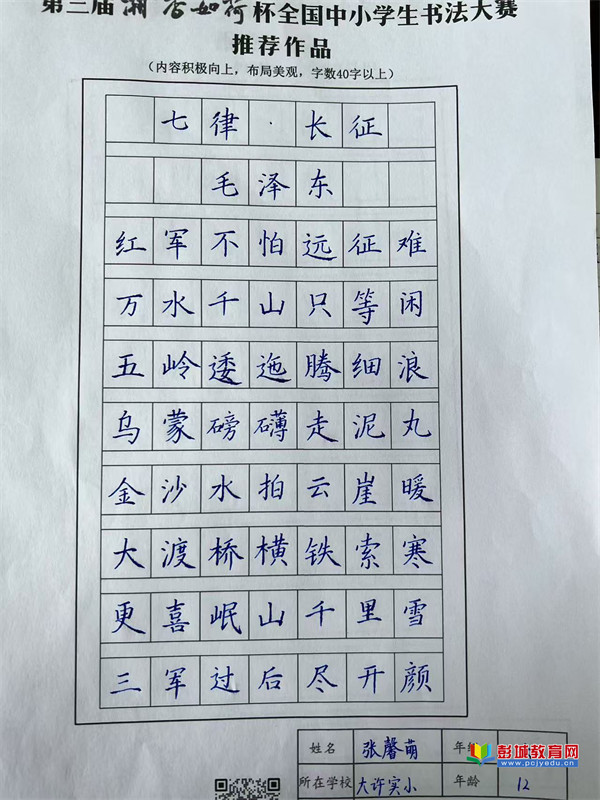 第三届湖 杯全国中小学生书法大赛
推荐作品
（内容积极向上，布局美观，字数40字以上）
七律·长征
毛泽东
红军不怕远征难
万水千山只等闲
五岭逶迤腾细浪
乌蒙磅礴走泥丸
金沙水拍云崖暖
大渡桥横铁索寒
更喜岷山千里雪
三军过后尽开颜
姓名 张馨萌 年
所在学校 大许实小 年龄 12
彭城教育网
www.pcjyedu.cn